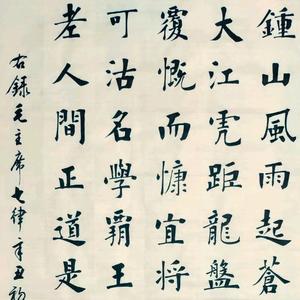 鍾山風雨起蒼
大江虎距龍盤
覆慨而慷宜將
可沽名學霸王
老人間正道是
右錄毛主席七律辛丑初